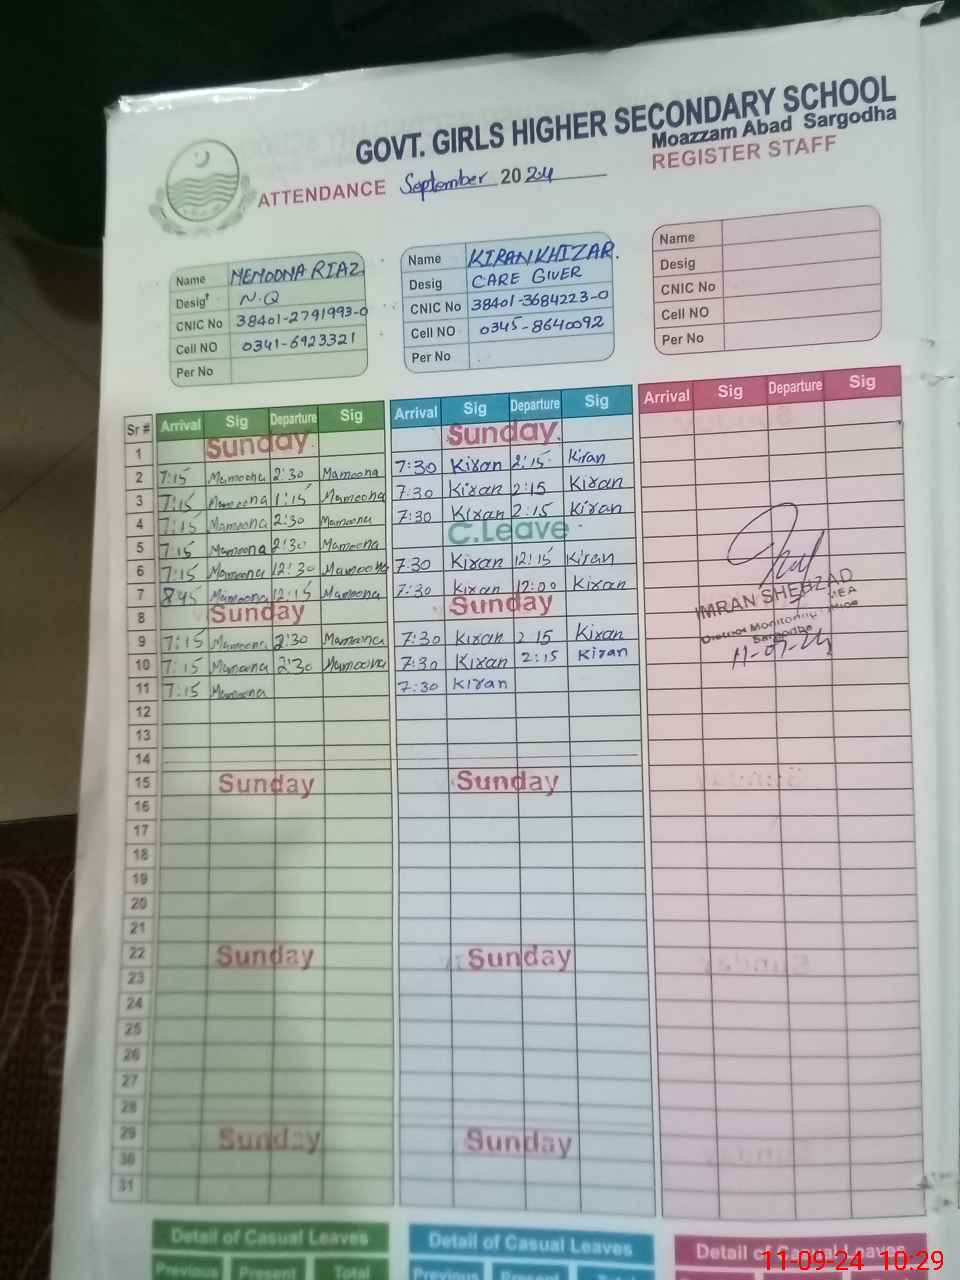 GOVT. GIRLS HIGHER SECONDARY SCHOOL
Moazzam Abad Sargodha
ATTENDANCE September 2024 REGISTER STAFF
Name MEMOONA RIAZ
Desig N.Q
CNIC No 38401-2791993-0
Cell NO 0341-6923321
Per No
Name KIRAN KHIZAR.
Desig CARE GIVER
CNIC No 38401-3684223-0
Cell NO 0345-8640092
Per No
Name
Desig
CNIC No
Cell NO
Per No
Sr # Arrival Sig Departure Sig Arrival Sig Departure Sig Arrival Sig Departure Sig
1 Sunday Sunday
2 7:15 Mamoona 2:30 Mamoona 7:30 Kiran 2:15 Kiran
3 7:15 Mamoona 1:15 Mamoona 7:30 Kiran 2:15 Kiran
4 7:15 Mamoona 2:30 Mamoona 7:30 Kiran 2:15 Kiran
5 7:15 Mamoona 2:30 Mamoona C.Leave
6 7:15 Mamoona 12:30 Mamoona 7:30 Kiran 12:15 Kiran
7 8:45 Mamoona 12:15 Mamoona 7:30 Kiran 12:00 Kiran
8 Sunday Sunday
9 7:15 Mamoona 2:30 Mamoona 7:30 Kiran 2:15 Kiran
10 7:15 Mamoona 2:30 Mamoona 7:30 Kiran 2:15 Kiran
11 7:15 Mamoona 7:30 Kiran
IMRAN SHEHZAD
District Monitoring
Sargodha
11-09-24
12
13
14
15 Sunday Sunday
16
17
18
19
20
21
22 Sunday Sunday
23
24
25
26
27
28
29 Sunday Sunday
30
31
Detail of Casual Leaves Detail of Casual Leaves Detail of Casual Leaves
Previous Present Total Previous Present Total
11-09-24 10:29